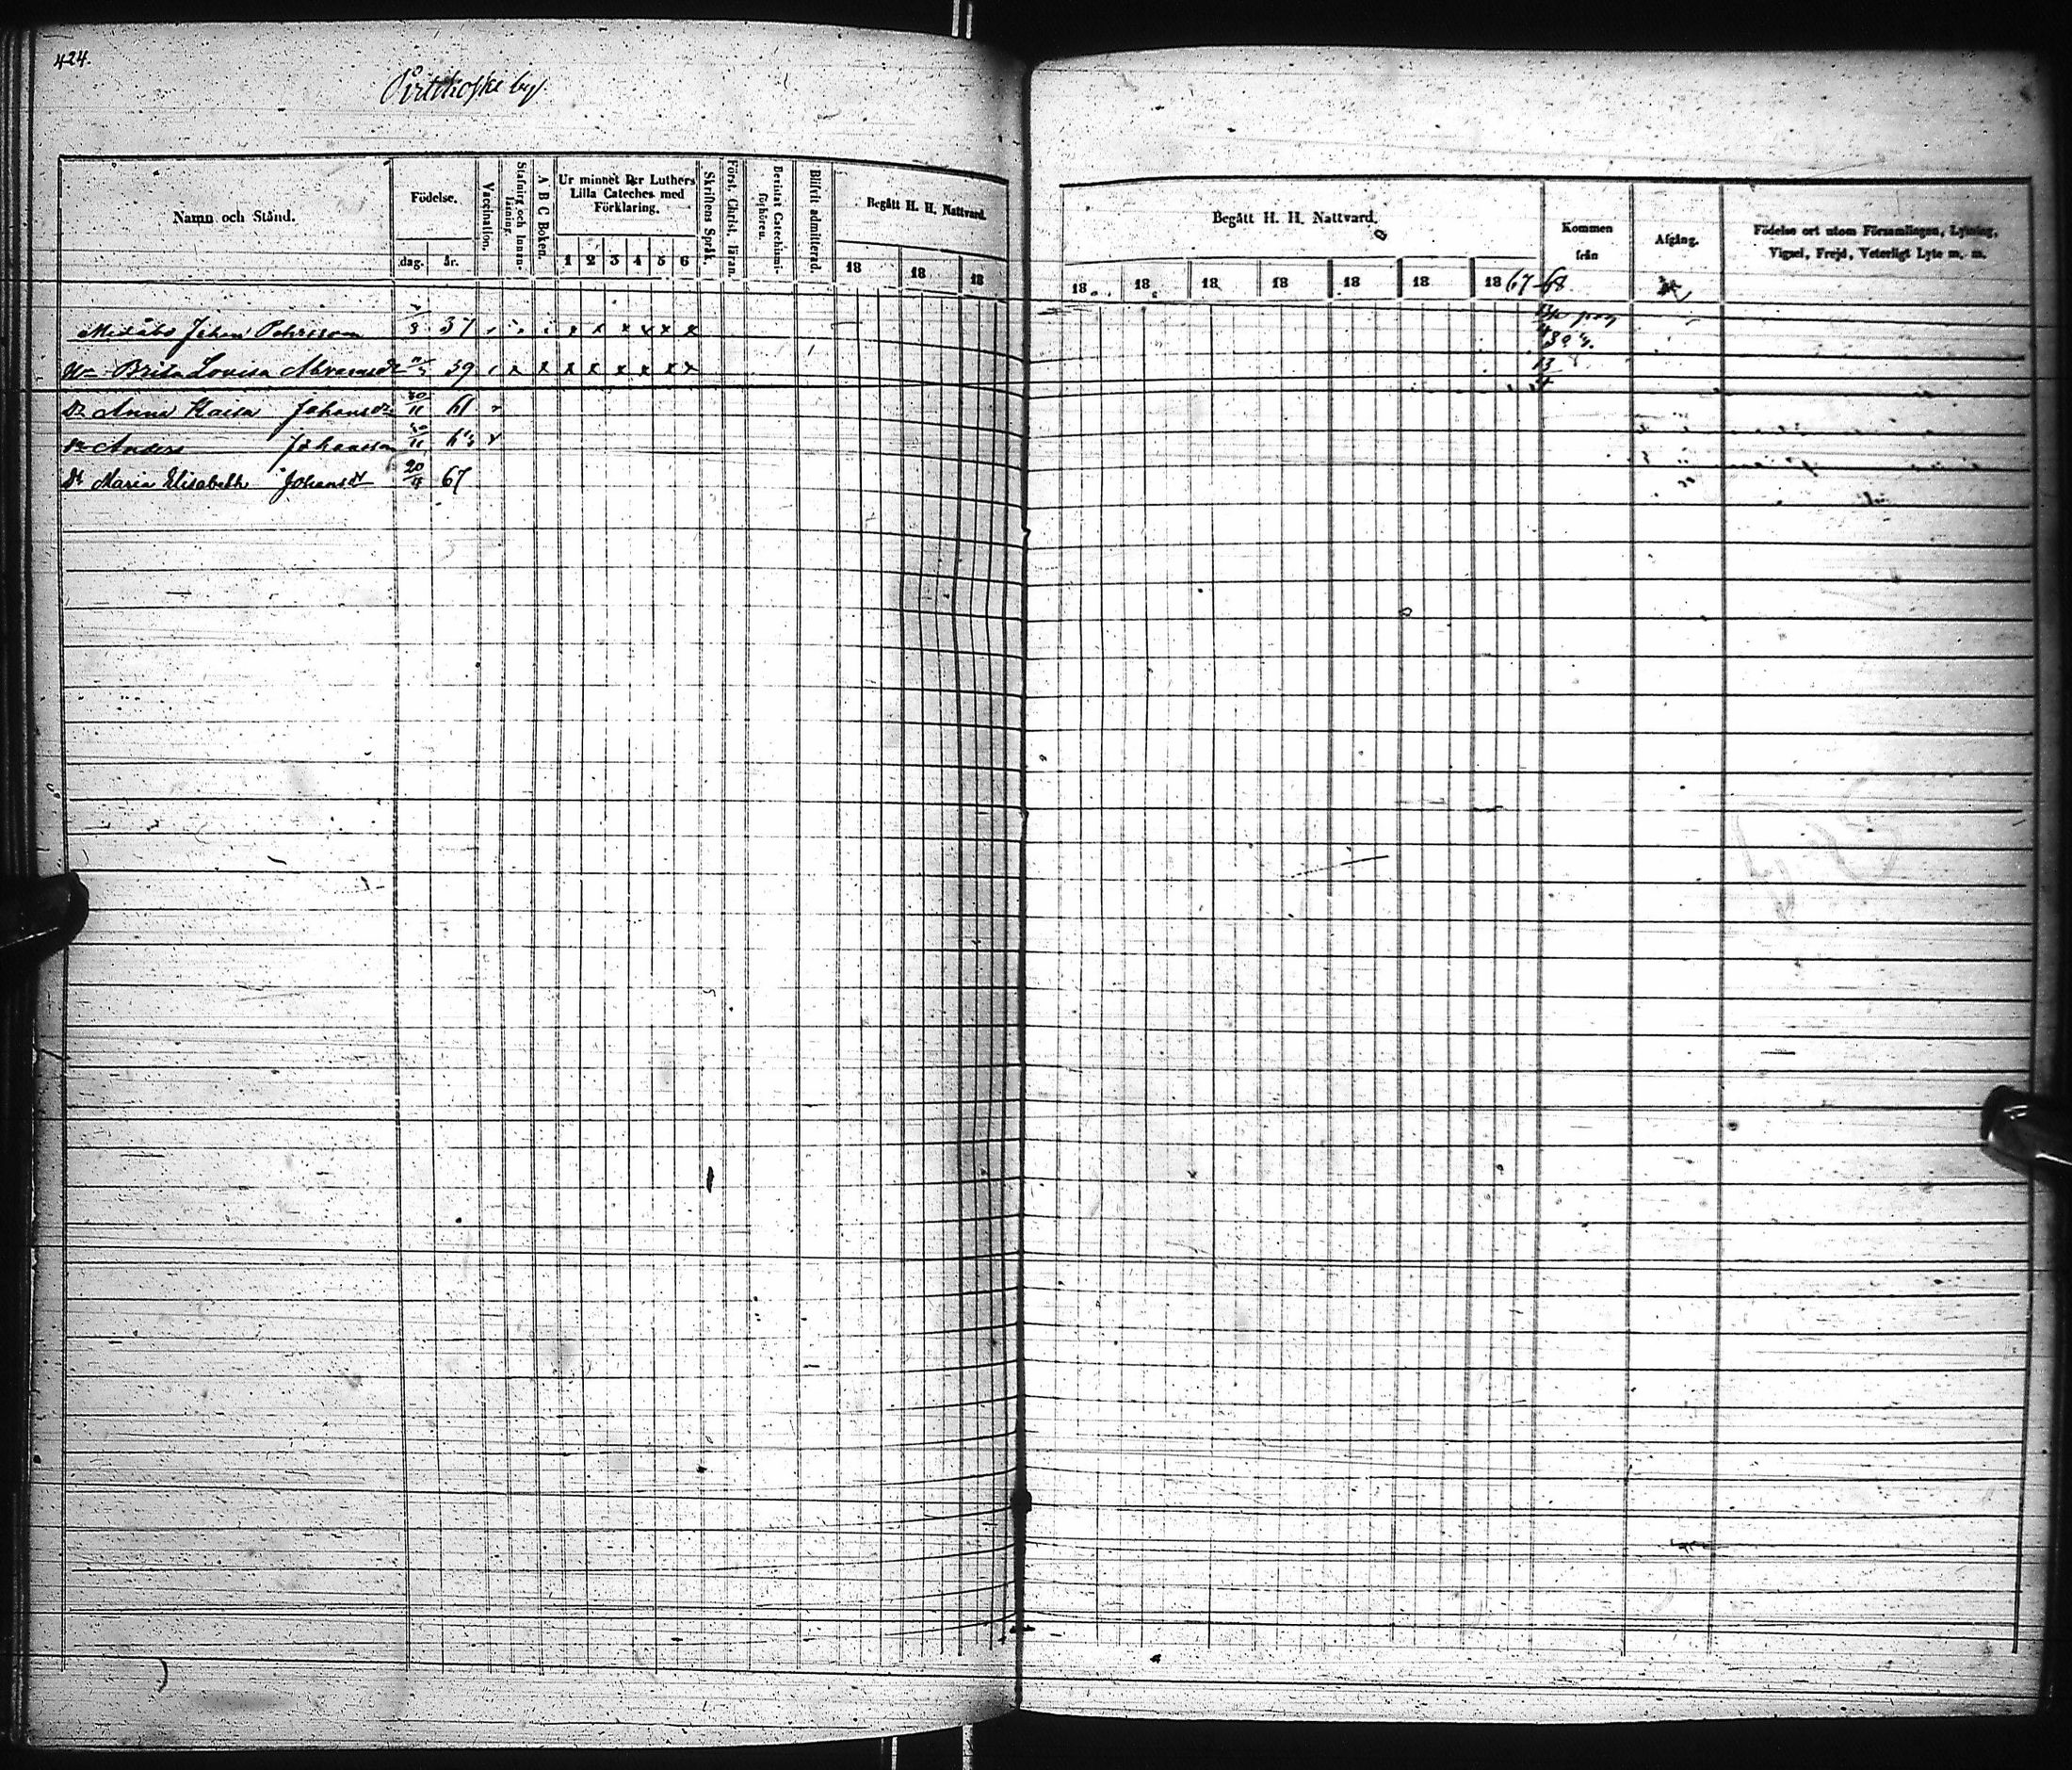 424.
Pirttikoske by.
Namn och Stånd. Födelse. dag. år. Vaccination. Stafning och Innan-läsning. A B C Boken. Ur minnet D:r Luthers Lilla Cateches med Förklaring. 1 2 3 4 5 6 Skriftens Språk. Först. Christ. läran. Bevistat Catechismi-förhören. Blifvit admitterad. Begått H. H. Nattvard. 18 18 18
Johan Pehrsson 3 37 x x x x x x
Brita Lovisa Abramsdr 39 x x x x x x x x
Dr Anna Kaisa Johansdr 30/11 61
Anders Johansson
Dr Maria Elisabeth Johansdr 20 67
Begått H. H. Nattvard.
18 18 18 18 18 18 1867-68
Kommen från
Afgång.
Födelse ort utom Församlingen, Lysning, Vigsel, Frejd, Veterligt Lyte m. m.